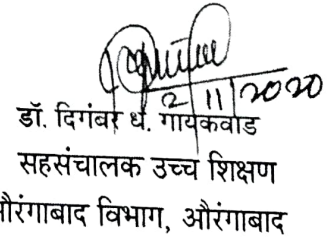 2/11/2020
डॉ. दिगंबर ध. गायकवाड
सहसंचालक उच्च शिक्षण
औरंगाबाद विभाग, औरंगाबाद